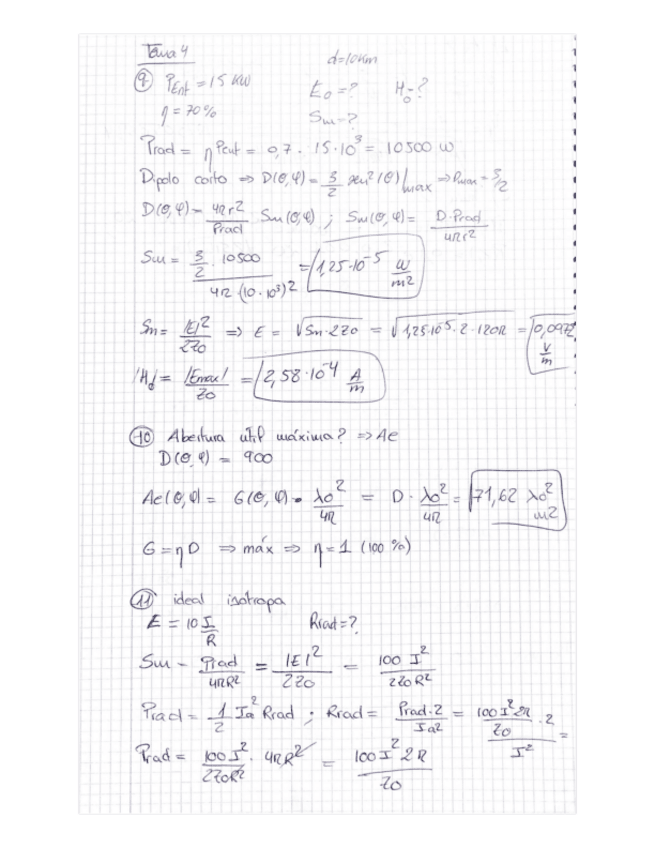 Tema 4
⑨ PEnt = 15 KW d=10km
E₀ = ? H₀ = ?
η = 70%
Sm = ?
Prad = η Pent = 0,7 · 15·10³ = 10500 W
Dipolo corto ⇒ D(θ,φ) = 3/2 sen²(θ)|max ⇒ Dmax = 3/2
D(θ,φ) = 4πr²/Prad Sm(θ,φ) ; Sm(θ,φ) = D·Prad/4πr²
Sm = 3/2 · 10500 / 4π·(10·10³)² = 1,25·10⁻⁵ W/m²
Sm = |E|²/2Z0 ⇒ E = √Sm·2Z0 = √1,25·10⁻⁵·2·120π = 0,0972 V/m
|H₀| = |Emax|/Z0 = 2,58·10⁻⁴ A/m
⑩ Abertura útil máxima? ⇒ Ae
D(θ,φ) = 900
Ae(θ,φ) = G(θ,φ) · λ0²/4π = D · λ0²/4π = 71,62 λ0² m2
G = η D ⇒ máx ⇒ η = 1 (100 %)
⑪ ideal isotropa
E = 10 I/R Rrad = ?
Sm = Prad/4πR² = |E|²/2Z0 = 100 I²/2Z0R²
Prad = 1/2 Ia² Rrad ; Rrad = Prad·2/Ia² = 100I²2π/Z0 · 2 / I² =
Prad = 100I²/2Z0R² · 4πR² = 100I²2π/Z0